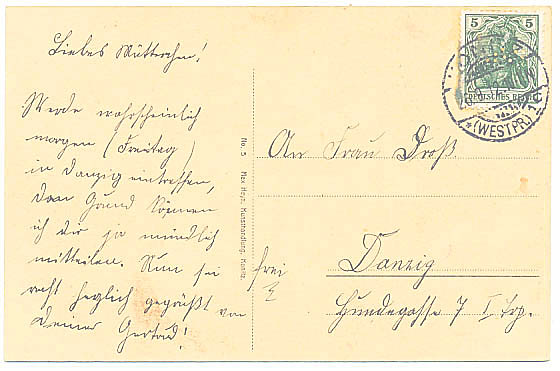 Liebes Mütterchen!
Werde wahrscheinlich
morgen (Freitag)
in Danzig eintreffen,
den Grund können
ich dir ja mündlich
mitteilen. Nun sei
recht herzlich gegrüßt von
deiner Gertrud!
No. 5 Max Heyn, Kunsthandlung, Konitz.
5 5
DEUTSCHES REICH
(WESTPR.)
An Frau Droß
frei
Danzig
Hundegasse 7 I Trp.